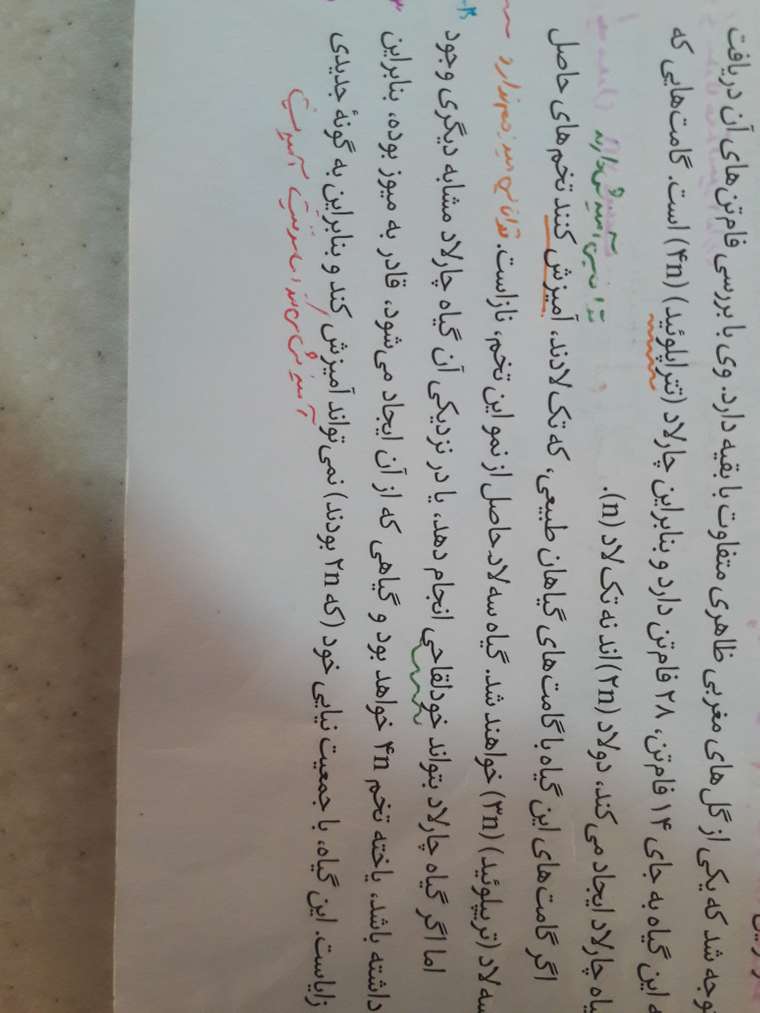 توجه شد که یکی از گل‌های مغربی ظاهری متفاوت با بقیه دارد. وی با بررسی فام‌تن‌های آن دریافت
که این گیاه به جای ۱۴ فام‌تن، ۲۸ فام‌تن دارد و بنابراین چارلاد (تتراپلوئید) (۴n) است. گامت‌هایی که
گیاه چارلاد ایجاد می‌کند، دولاد (۲n)‌اند نه تک‌لاد (n).
توانایی آمیزش دارند
اگر گامت‌های این گیاه با گامت‌های گیاهان طبیعی، که تک‌لادند، آمیزش کنند تخم‌های حاصل
سه‌لاد (تریپلوئید) (۳n) خواهند شد. گیاه سه‌لاد حاصل از نمو این تخم، نازاست.
توانایی میوز هم ندارد
اما اگر گیاه چارلاد بتواند خودلقاحی انجام دهد، یا در نزدیکی آن گیاه چارلاد مشابه دیگری وجود
داشته باشد، یاخته تخم ۴n خواهد بود و گیاهی که از آن ایجاد می‌شود، قادر به میوز بوده، بنابراین
زایاست. این گیاه، با جمعیت نیایی خود (که ۲n بودند) نمی‌تواند آمیزش کند و بنابراین به گونهٔ جدیدی
آمیزش